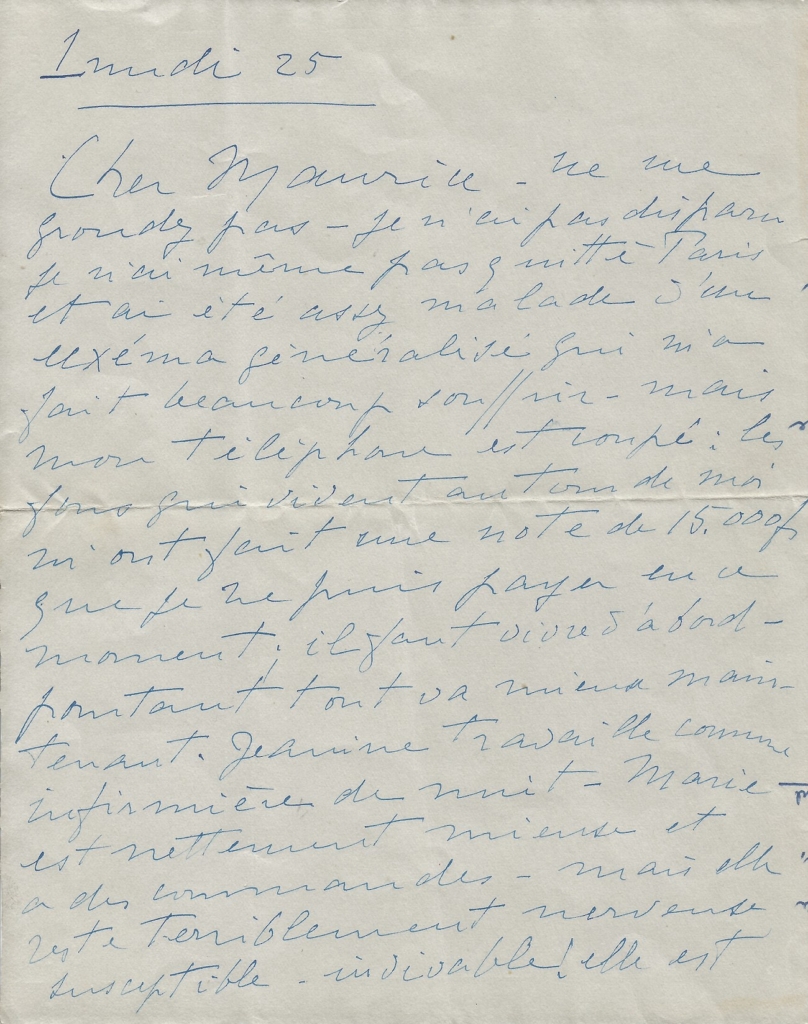 Lundi 25
Cher Maurice - ne me
grondez pas - je n'ai pas disparu
je n'ai même pas quitté Paris
et ai été assez malade d'un
euxéma généralisé qui m'a
fait beaucoup souffrir - mais
mon téléphone est coupé : les
fous qui vivent autour de moi
m'ont fait une note de 15.000f
que je ne puis payer en ce
moment ; il faut vivre d'abord -
pourtant tout va mieux main-
tenant. Jeanine travaille comme
infirmière de nuit - Marie
est nettement mieux et
a des commandes - mais elle
reste terriblement nerveuse
susceptible - invivable ! elle est